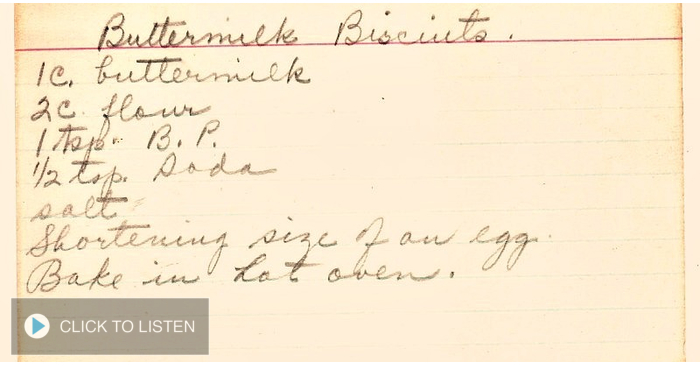 Buttermilk Biscuits.
1c. buttermilk
2c flour
1 tsp. B. P.
1/2 tsp. Soda
salt
Shortening size of an egg.
Bake in hot oven.
CLICK TO LISTEN